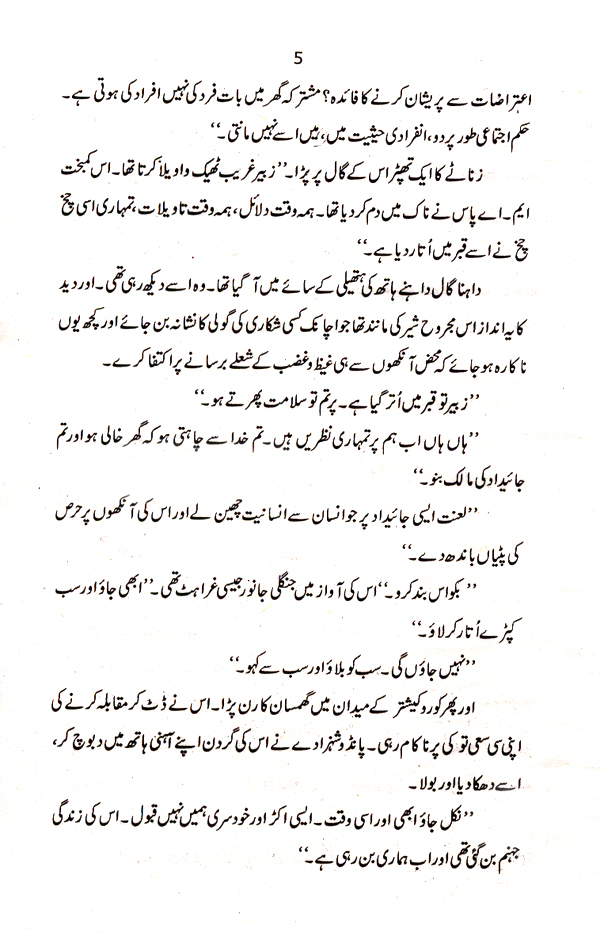 5
اعتراضات سے پریشان کرنے کا فائدہ؟ مشترکہ گھر میں بات فرد کی نہیں افراد کی ہوتی ہے۔
حکم اجتماعی طور پر دو، انفرادی حیثیت میں، میں اسے نہیں مانتی۔‘‘
زناٹے کا ایک تھپڑ اس کے گال پر پڑا۔ ’’زبیر غریب ٹھیک واویلا کرتا تھا۔ اس کمبخت
ایم۔اے پاس نے ناک میں دم کر دیا تھا۔ ہمہ وقت دلائل، ہمہ وقت تاویلات، تمہاری اسی چخ
چخ نے اسے قبر میں اُتار دیا ہے۔‘‘
داہنا گال داہنے ہاتھ کی ہتھیلی کے سائے میں آ گیا تھا۔ وہ اسے دیکھ رہی تھی۔ اور دید
کا یہ انداز اس مجروح شیر کی مانند تھا جو اچانک کسی شکاری کی گولی کا نشانہ بن جائے اور کچھ یوں
ناکارہ ہو جائے کہ محض آنکھوں سے ہی غیظ و غضب کے شعلے برسانے پر اکتفا کرے۔
’’زبیر تو قبر میں اُتر گیا ہے۔ پر تم تو سلامت پھرتے ہو۔‘‘
’’ہاں ہاں اب ہم پر تمہاری نظریں ہیں۔ تم خدا سے چاہتی ہو کہ گھر خالی ہو اور تم
جائیداد کی مالک بنو۔‘‘
’’لعنت ایسی جائیداد پر جو انسان سے انسانیت چھین لے اور اس کی آنکھوں پر حرص
کی پٹیاں باندھ دے۔‘‘
’’بکواس بند کرو۔‘‘ اس کی آواز میں جنگلی جانور جیسی غراہٹ تھی۔ ’’ابھی جاؤ اور سب
کپڑے اُتار کر لاؤ۔‘‘
’’نہیں جاؤں گی۔ سب کو بلاؤ اور سب سے کہو۔‘‘
اور پھر کوروکیشتر کے میدان میں گھمسان کا رن پڑا۔ اس نے ڈٹ کر مقابلہ کرنے کی
اپنی سی سعی تو کی پر ناکام رہی۔ پانڈو شہزادے نے اس کی گردن اپنے آہنی ہاتھ میں دبوچ کر،
اسے دھکا دیا اور بولا۔
’’نکل جاؤ ابھی اور اسی وقت۔ ایسی اکڑ اور خودسری ہمیں نہیں قبول۔ اس کی زندگی
جہنم بن گئی تھی اور اب ہماری بن رہی ہے۔‘‘